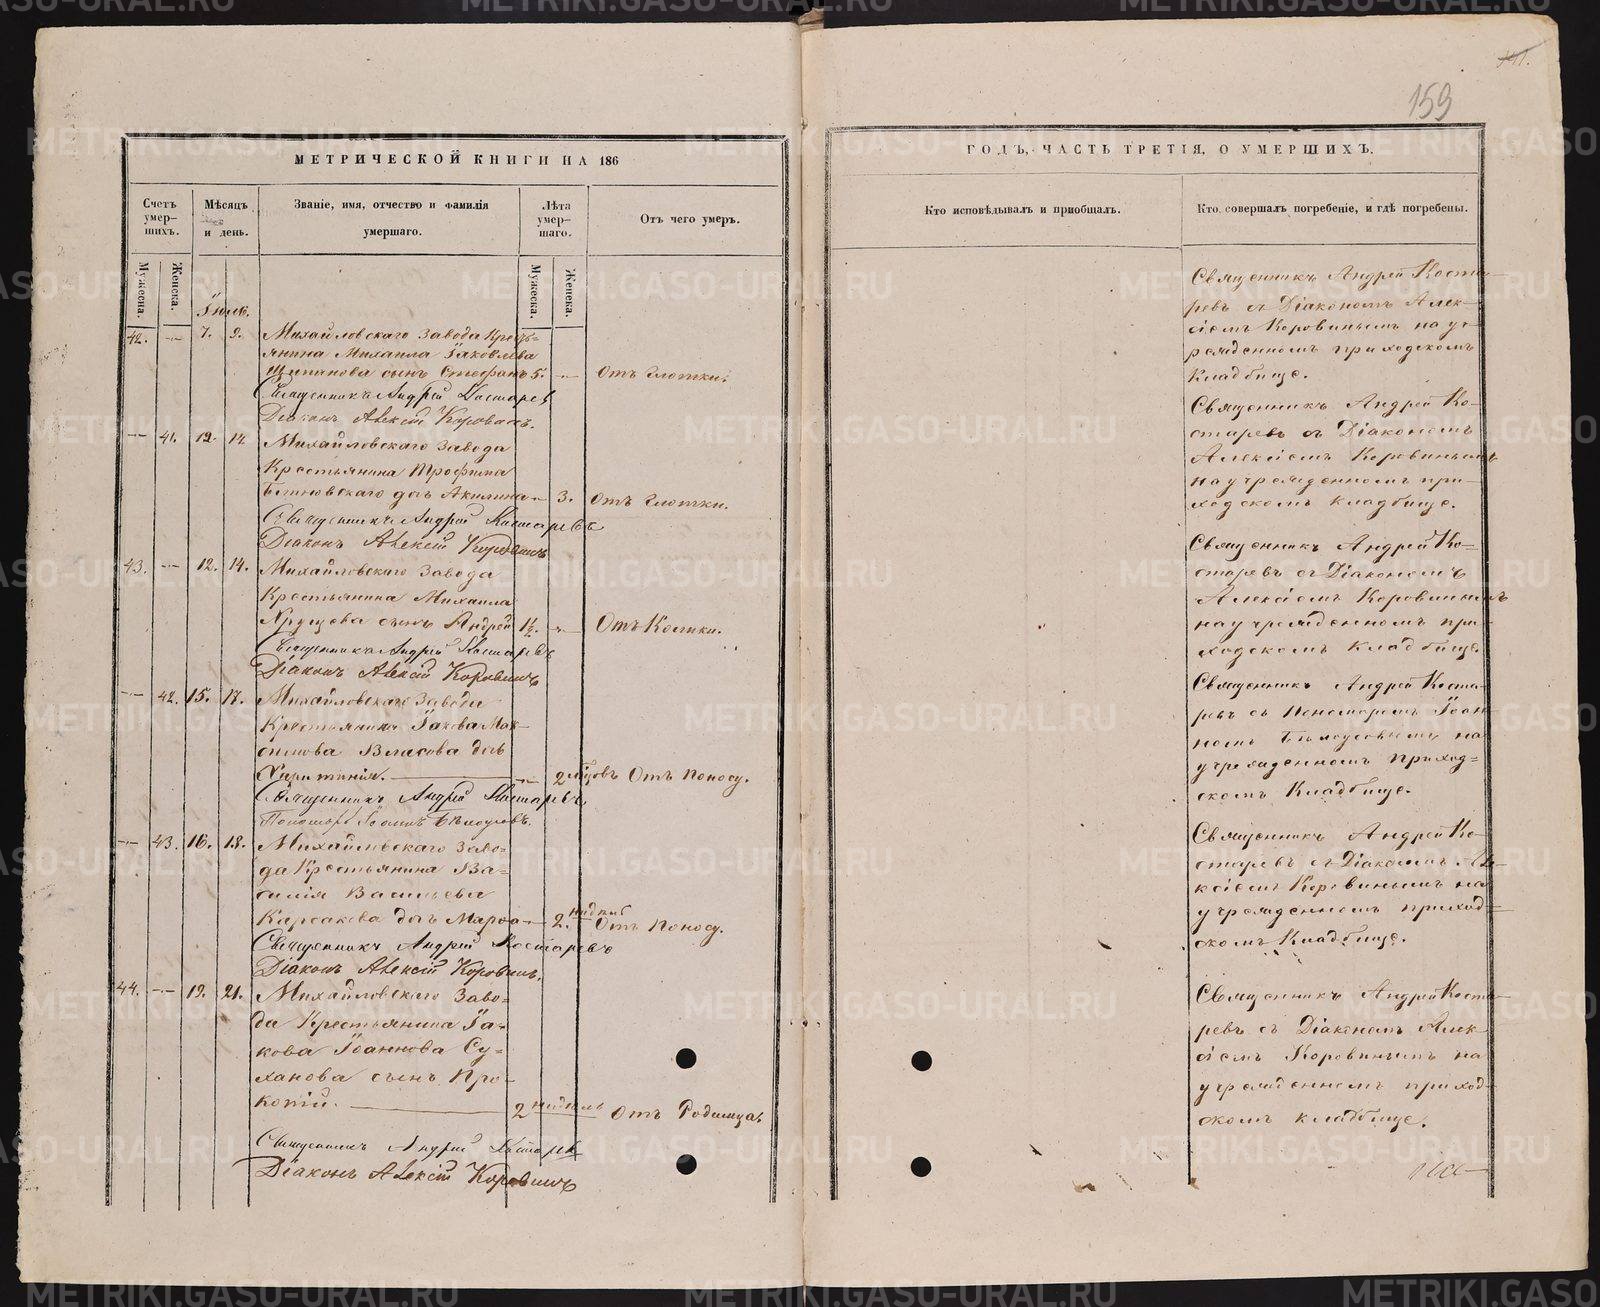 141.
159
МЕТРИЧЕСКОЙ КНИГИ НА 186
Счетъ умер-
шихъ.
Мѣсяцъ
и день.
Званіе, имя, отчество и фамилія
умершаго.
Лѣта
умер-
шаго.
Отъ чего умеръ.
Мужеска.
Женска.
Мужеска.
Женска.
Іюль.
42. — 7. 9. Михайловскаго Завода Кресть-
янина Михаила Яковлева
сынъ Стефанъ 5. — Отъ Глотки.
Священникъ Андрей Костаревъ
Діаконъ Алексій Коровинъ.
— 41. 12. 14. Михайловскаго Завода
Крестьянина Трофима
дочь Акилина — 3. Отъ Глотки.
Священникъ Андрей Костаревъ
Діаконъ Алексій Коровинъ
43. — 12. 14. Михайловскаго Завода
Крестьянина Михаила
Хрущова сынъ Андрей 1½. — Отъ Колики.
Священникъ Андрей Костаревъ
Діаконъ Алексій Коровинъ
— 42. 15. 17. Михайловскаго Завода
Крестьянина Іакова Мак-
симова Власова дочь
Харитинія. — 2 мѣсяцовъ Отъ Поносу.
Священникъ Андрей Костаревъ
Пономарь Іоаннъ Бѣлоусовъ.
— 43. 16. 18. Михайловскаго Заво-
да Крестьянина Ва-
силія Васильева
Карсакова дочь Марѳа — 2. недѣль Отъ Поносу.
Священникъ Андрей Костаревъ
Діаконъ Алексій Коровинъ.
44. — 19. 21. Михайловскаго Заво-
да Крестьянина Іа-
кова Іоаннова Су-
ханова сынъ Про-
копій. 2 недѣль Отъ Родимца.
Священникъ Андрей Костаревъ
Діаконъ Алексій Коровинъ
ГОДЪ, ЧАСТЬ ТРЕТІЯ, О УМЕРШИХЪ.
Кто исповѣдывалъ и пріобщалъ.
Кто совершалъ погребеніе, и гдѣ погребены.
Священникъ Андрей Коста-
ревъ съ Діакономъ Алек-
сіемъ Коровинымъ на уч-
режденномъ приходскомъ
Кладбище.
Священникъ Андрей Ко-
старевъ съ Діакономъ
Алексіемъ Коровинымъ
на учрежденномъ при-
ходскомъ кладбище.
Священникъ Андрей Ко-
старевъ съ Діакономъ
Алексіемъ Коровинымъ
на учрежденномъ при-
ходскомъ кладбище.
Священникъ Андрей Коста-
ревъ съ Пономаремъ Іоан-
номъ Бѣлоусовымъ на
учрежденномъ Приход-
скомъ Кладбище.
Священникъ Андрей Ко-
старевъ съ Діакономъ Але-
ксіемъ Коровинымъ на
учрежденномъ приход-
скомъ Кладбище.
Священникъ Андрей Коста-
ревъ съ Діакономъ Алек-
сіемъ Коровинымъ на
учрежденномъ приход-
скомъ кладбище.
METRIKI.GASO-URAL.RU